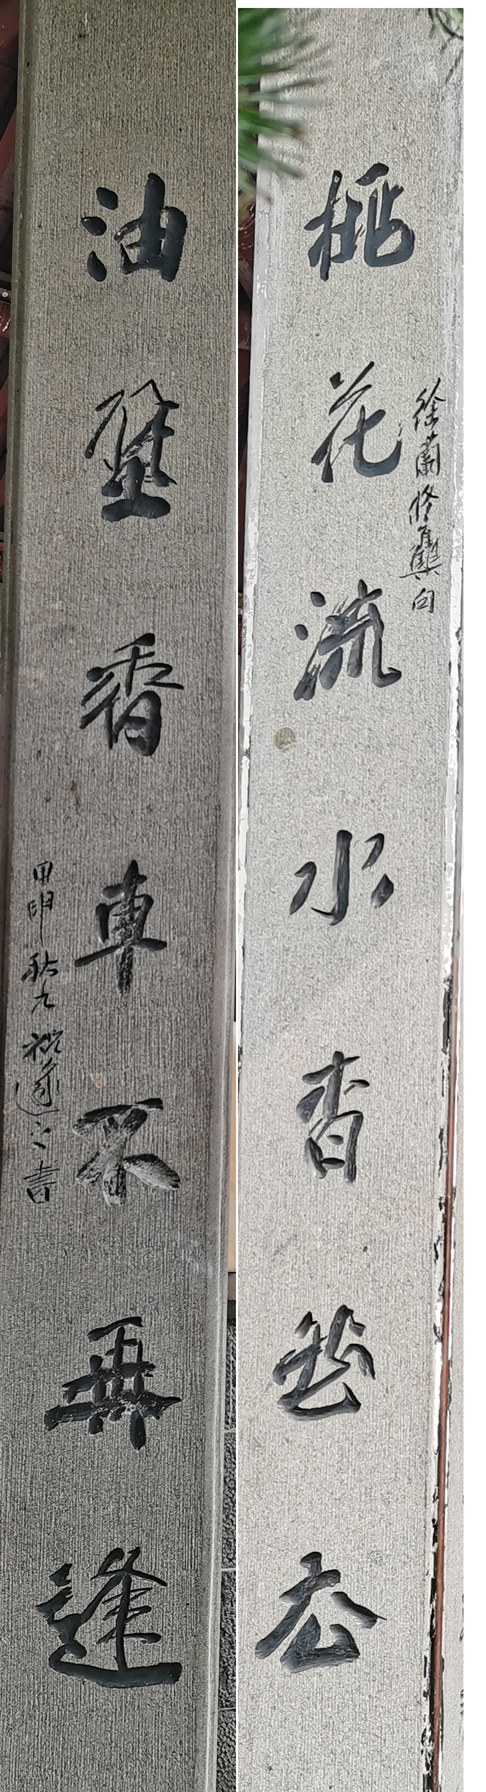 桃花流水杳然去
徐蘭修舊句
油壁香車不再逢
甲申秋九祝遂之書